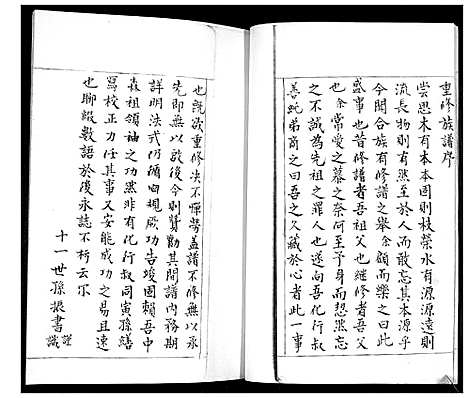 重修族譜序
嘗思木有本本固則枝榮水有源源遠則
流長物則有然而敢忘其本源乎
今聞合族有修譜之舉余顧而樂之曰此
盛事也昔修譜者吾祖父也繼修者吾父
也余常愛之慕之奈何至予身而恝然忘
之不誠為先祖之罪人也吾化行叔
善純弟商之曰吾之久藏於心者此一事
也既欲重修決不憚勞蓋譜不修無以承
先即無以啟後今則贊勷其間譜內務期
詳明法式仍循曲規厥功告竣固賴吾中
森祖領袖之功然非有化行叔同寅孫繕
寫校正力任其事又安能成功之易且速
也聊綴數語於後永誌不朽云尔
十一世孫振書謹識